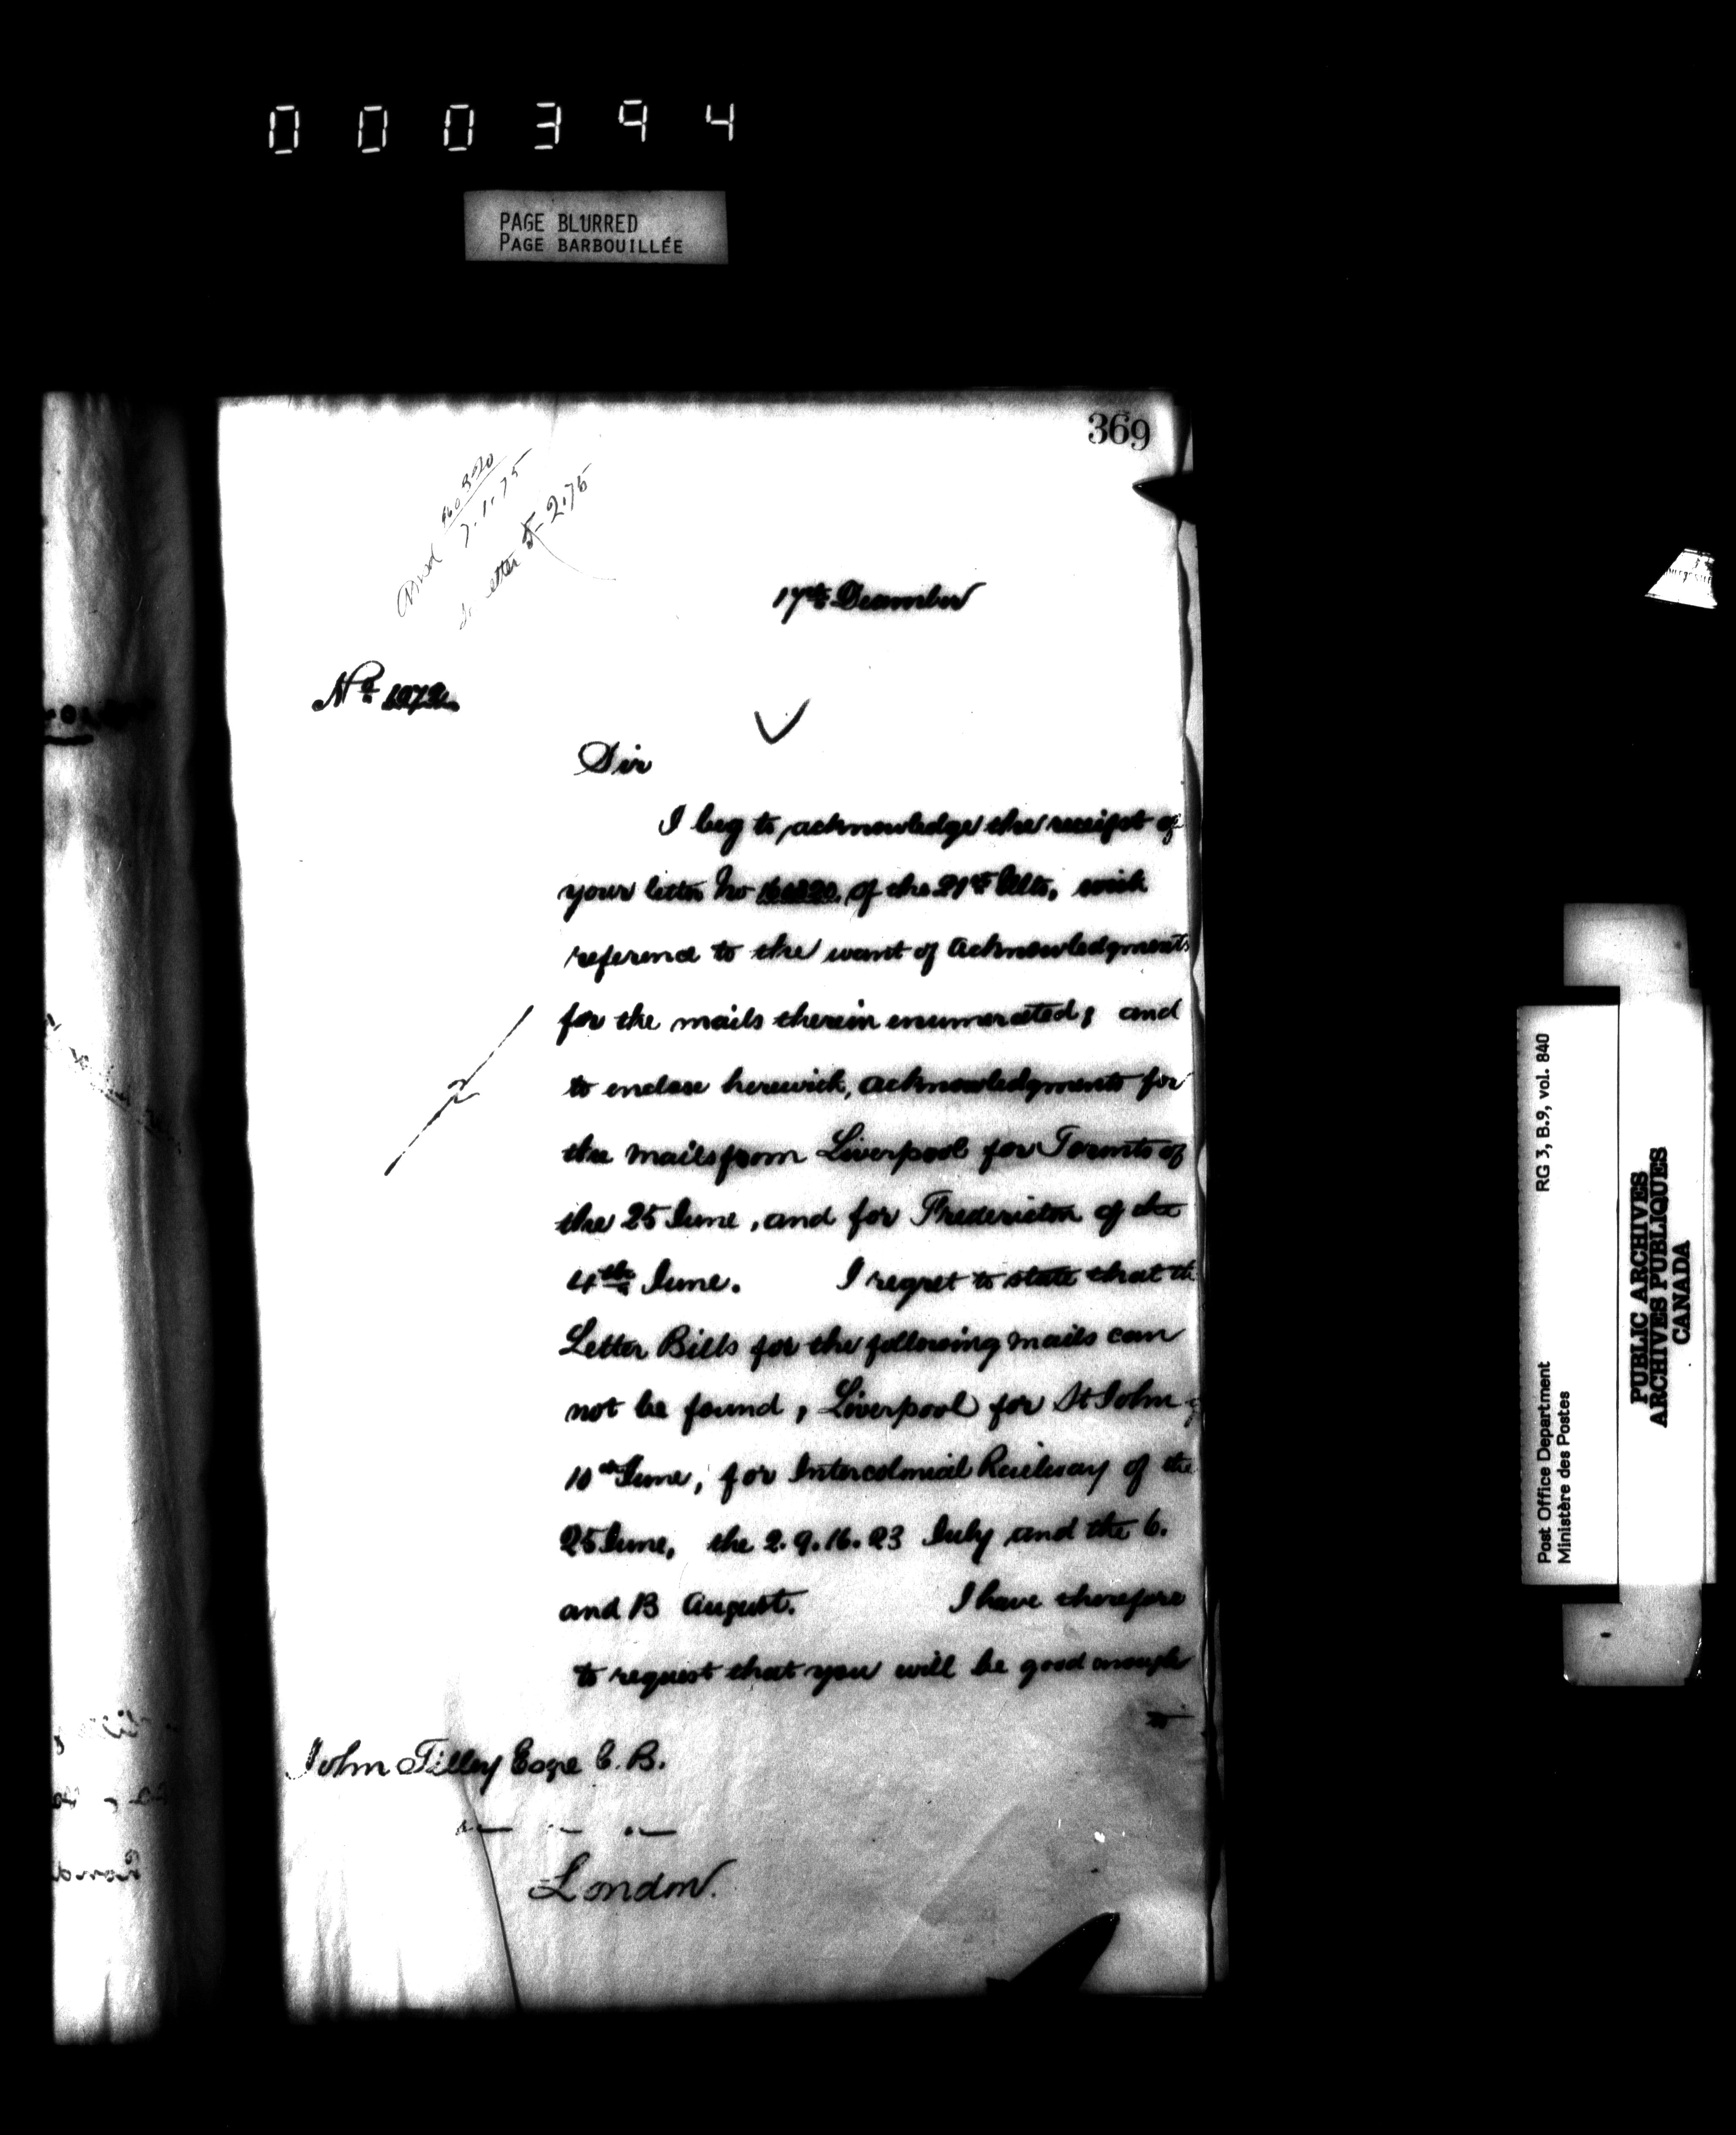 000394
PAGE BLURRED
PAGE BARBOUILLÉE
369
7.1.75
etter 5-2.75
17th December
No
Sir
I beg to acknowledge the receipt of
your letter No of the 21st Ulto, with
reference to the want of acknowledgments
for the mails therein enumerated; and
to enclose herewith, acknowledgments for
the mails from Liverpool for Toronto of
the 25 June, and for Fredericton of the
4th June. I regret to state that the
Letter Bills for the following mails can
not be found, Liverpool for St John
10th June, for Intercolonial Railway of the
25 June, the 2.9.16.23 July and the 6.
and 13 August. I have therefore
to request that you will be good enough
to
John Tilley Esqre C.B.
London.
Post Office Department RG 3, B.9, vol. 840
Ministère des Postes
PUBLIC ARCHIVES
ARCHIVES PUBLIQUES
CANADA